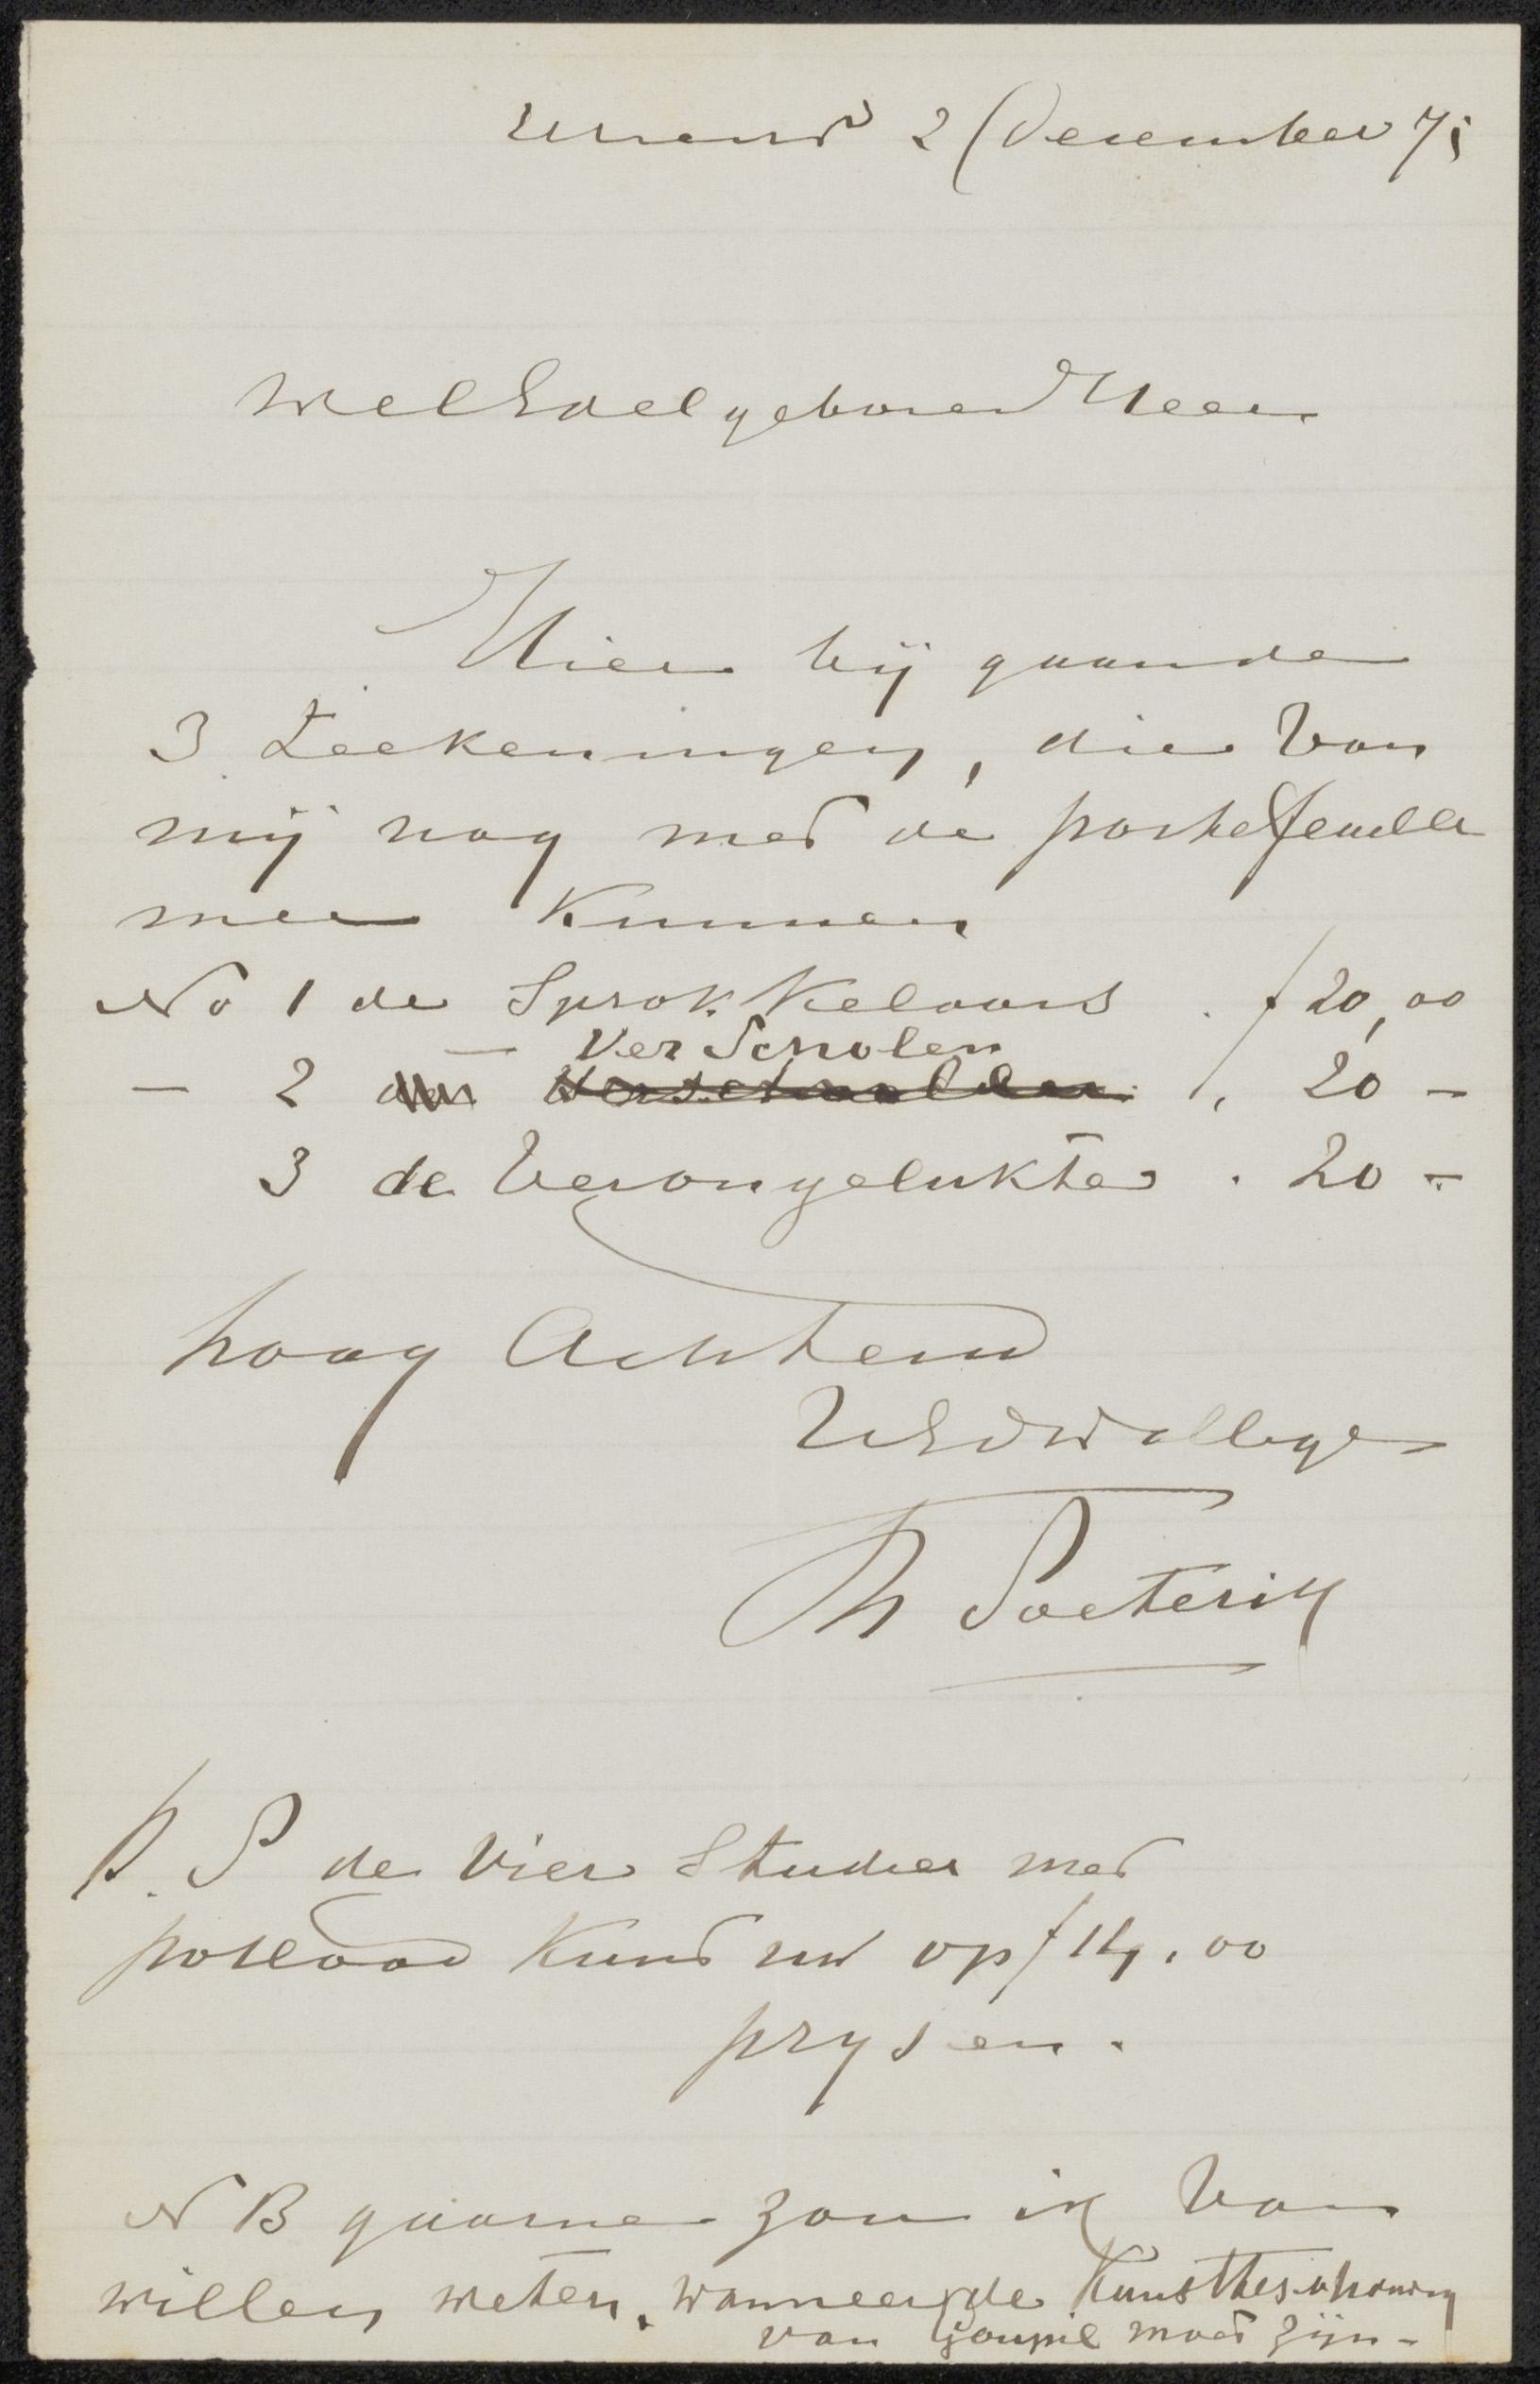 2 December 75
WelEdelgeboren Heer
Hier bij gaande
3 Teekeningen, die van
mij nog met de portefeuille
mee kunnen
No 1 de Sprokkelaars . f 20,00
— Verscholen
— 2 , 20 –
3 de Verongelukte . 20 –
hoog Achtend
UEdwillige
Th Soeterik
P.S de vier Studies met
potlood kunt uw op f 14,00
prysen.
NB gaarne zou ik van
willen weten, wanneer de Kunstbeschouwing
van Goupil moet zijn –